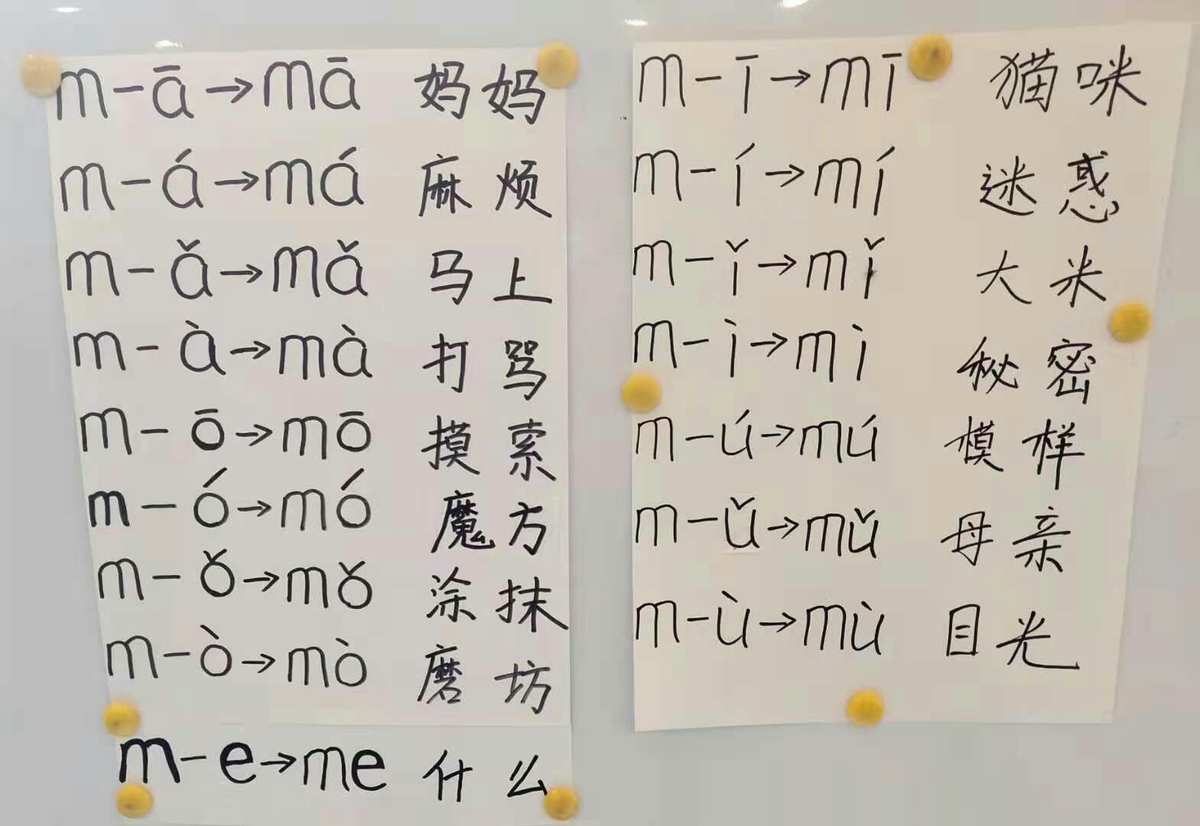 m-ā→mā 妈妈
m-á→má 麻烦
m-ǎ→mǎ 马上
m-à→mà 打骂
m-ō→mō 摸索
m-ó→mó 魔方
m-ǒ→mǒ 涂抹
m-ò→mò 磨坊
m-e→me 什么
m-ī→mī 猫咪
m-í→mí 迷惑
m-ǐ→mǐ 大米
m-ì→mì 秘密
m-ú→mú 模样
m-ǔ→mǔ 母亲
m-ù→mù 目光